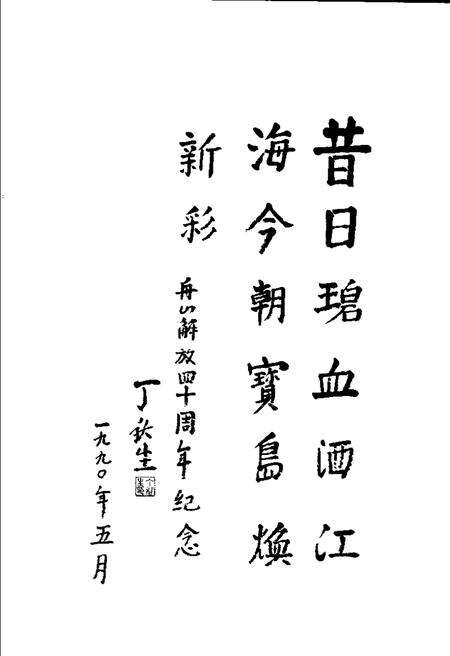 昔日碧血洒江
海今朝寶島焕
新彩 舟山解放四十周年纪念
丁秋生
一九九〇年五月